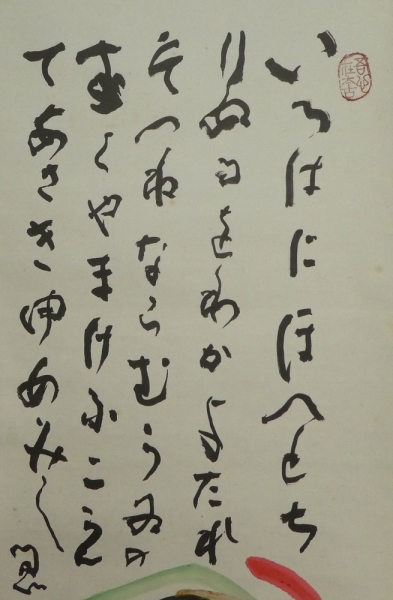 いろはにほへとち
りぬるをわかよたれ
そつねならむうゐの
おくやまけふこえ
てあさきゆめみし